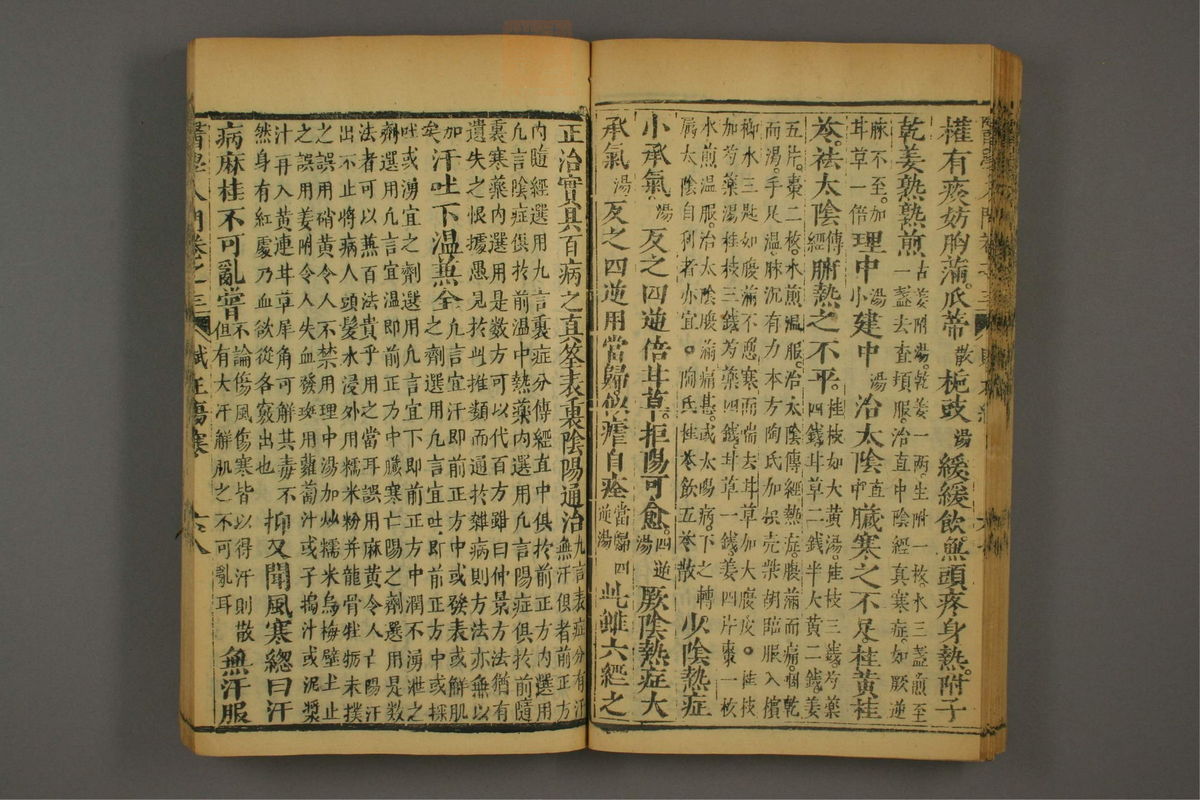 權有痰妨胸滿。瓜蒂散梔豉湯緩緩飲無頭疼身熱。附子
乾姜熟熟煎古姜附湯。乾姜一兩生附一枚。水三盞煎至一盞去查頓服。治直中陰經真寒症。如厥逆
麻不至。加甘草一倍理中湯小建中湯治太陰直中臟寒之不足。桂黃桂
苓。祛太陰傳經腑熱之不平。桂枝如大黃湯桂枝三錢。芍藥四錢。甘草二錢半大黃二錢。姜
五片。棗二枚。水煎溫服。治太陰傳經熱症。腹滿而痛。咽乾而渴。手足溫。脉沉有力本方陶氏加枳壳柴胡臨服入檳
榔水三匙如腹滿不惡寒而喘去甘草加大腹皮。桂枝加芍藥湯桂枝三錢芍藥四錢。甘草一錢。姜四片棗一枚
水煎溫服。治太陰腹滿痛甚。或太陽病。下之轉屬太陰自利者亦宜。陶氏桂苓飲五苓散少陰熱症
小承氣湯反之四逆倍甘草。拒陽可愈。四逆湯厥陰熱症大
承氣湯反之四逆用當歸似瘧自痊當歸四逆湯此雖六經之
正治實具百病之真筌表裏陰陽通治九言表症分有汗無汗俱者前正方
內隨經選用九言裏症分傳經直中俱於前正方內選用凡言陰症俱於前溫中熱藥內選用凡言陽症俱於前隨
裏寒藥內選用是數方可以代百方雖曰仲景方法猶有遺失之恨據愚見於此推類而通於雜病則方法亦無以
加矣汗吐下溫兼全之劑選用凡言宜汗即前正方中或發表或解肌之劑選用凡言宜吐。即前正方中或探
吐或湧宜之劑選用凡言宜下即前正方中潤不湧泄之劑選用凡言宜溫即前正方中臟寒亡陽之劑選用是數
法者可以兼百法貴乎用之當耳誤用麻黃令人亡陽汗出不止將病人頭髮水浸外用糯米粉并龍骨牡蠣末撲
之誤用硝黃令人不禁用理中湯加炒糯米烏梅壁土止之誤用姜附令人失血發斑用蘿蔔汁或子搗汁或泥漿
汁再入黃連甘草犀角可解其毒不然身有紅處乃血欲從各竅出也抑又聞風寒總曰汗
病麻桂不可亂嘗不論傷風傷寒皆以得汗則散但有大汗解肌之不同不可亂耳無汗服
醫學入門卷之三 賦在傷寒 六八